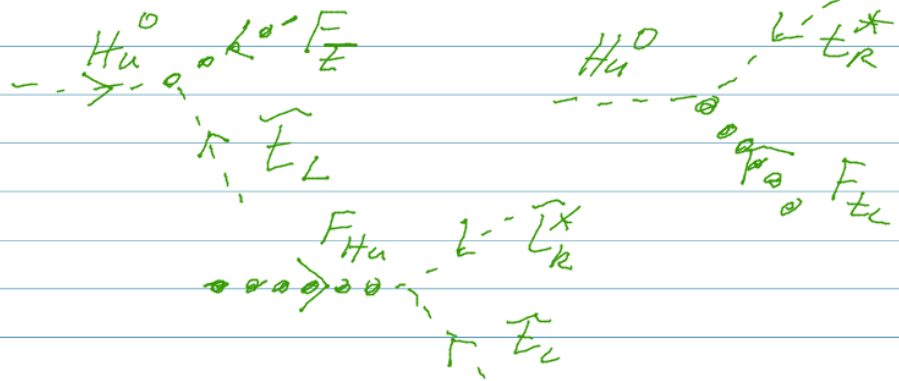 H_u^0 F_{\bar{t}} H_u^0 \tilde{t}_R^*
\tilde{t}_L F_{t_L}
F_{H_u} \tilde{t}_R^*
\tilde{t}_L